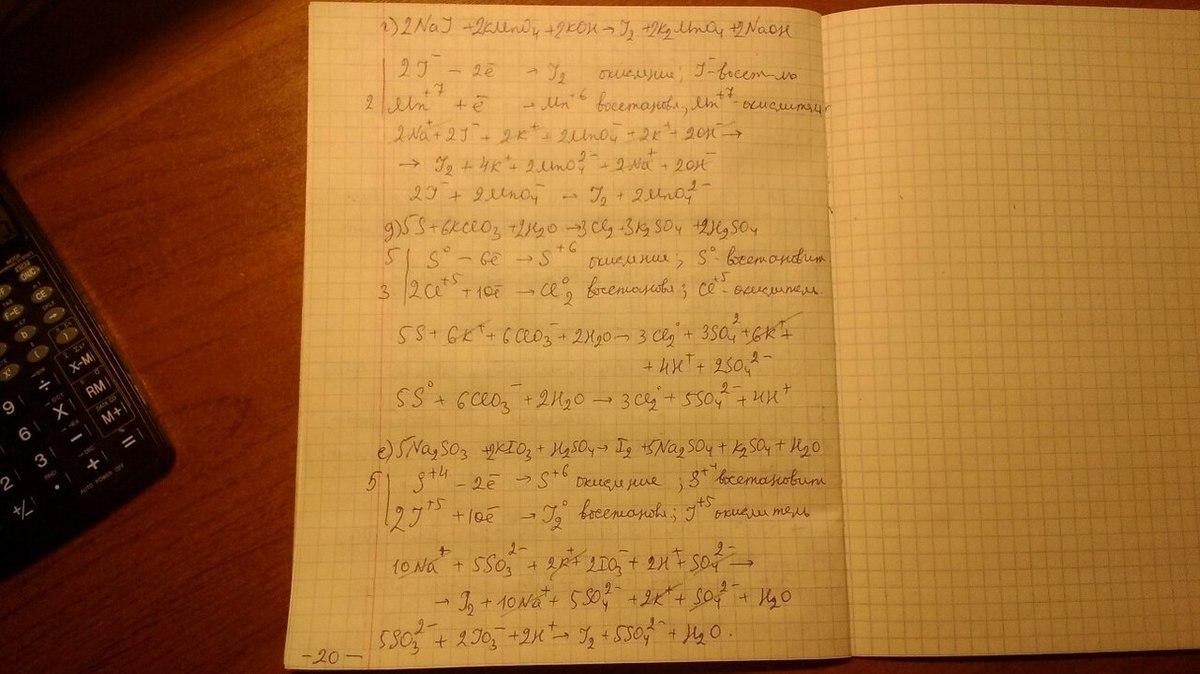 г) 2NaJ + 2KMnO₄ + 2KOH → J₂ + 2K₂MnO₄ + 2NaOH
2J⁻ − 2ē → J₂ окисление; J⁻ восст-ль
2 | Mn⁺⁷ + ē → Mn⁺⁶ восстановл; Mn⁺⁷ - окислитель
2Na⁺ + 2J⁻ + 2K⁺ + 2MnO₄⁻ + 2K⁺ + 2OH⁻ →
→ J₂ + 4K⁺ + 2MnO₄²⁻ + 2Na⁺ + 2OH⁻
2J⁻ + 2MnO₄⁻ → J₂ + 2MnO₄²⁻
д) 5S + 6KClO₃ + 2H₂O → 3Cl₂ + 3K₂SO₄ + 2H₂SO₄
5 | S⁰ − 6ē → S⁺⁶ окисление; S⁰ - восстановит
3 | 2Cl⁺⁵ + 10ē → Cl₂⁰ восстановл; Cl⁺⁵ - окислитель
5S + 6K⁺ + 6ClO₃⁻ + 2H₂O → 3Cl₂⁰ + 3SO₄² + 6K⁺ +
+ 4H⁺ + 2SO₄²⁻
5S⁰ + 6ClO₃⁻ + 2H₂O → 3Cl₂⁰ + 5SO₄²⁻ + 4H⁺
е) 5Na₂SO₃ + 2KIO₃ + H₂SO₄ → I₂ + 5Na₂SO₄ + K₂SO₄ + H₂O
5 | S⁺⁴ − 2ē → S⁺⁶ окисление; S⁺⁴ восстановит
2J⁺⁵ + 10ē → J₂⁰ восстановл; J⁺⁵ окислитель
10Na⁺ + 5SO₃²⁻ + 2K⁺ + 2IO₃⁻ + 2H⁺ + SO₄²⁻ →
→ J₂ + 10Na⁺ + 5SO₄²⁻ + 2K⁺ + SO₄²⁻ + H₂O
5SO₃²⁻ + 2JO₃⁻ + 2H⁺ → J₂ + 5SO₄²⁻ + H₂O.
-20-
ON/C
CE
÷
X→M
9
X
RM
6
−
M+
3
+
=
2
•
+/−
AUTO POWER OFF